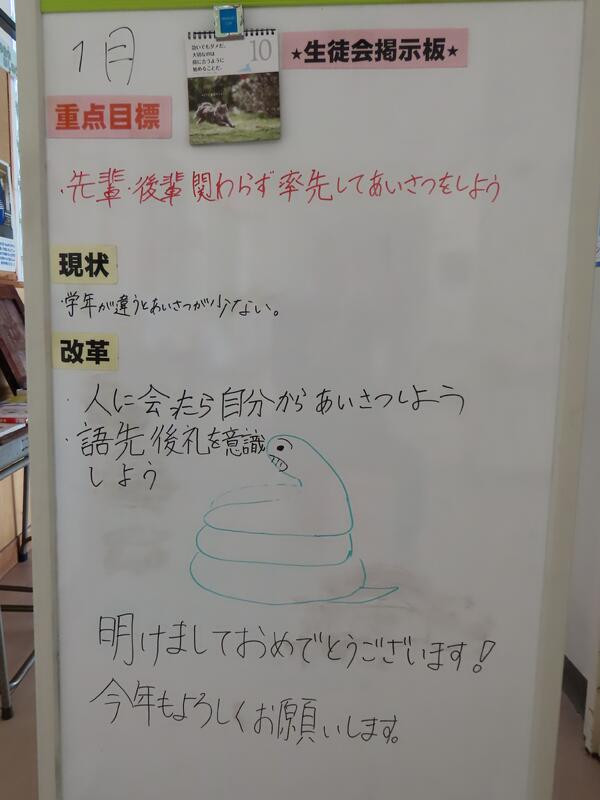 1月
急いでもダメだ。
大切なのは
間に合うように
始めることだ。
10
★生徒会掲示板★
重点目標
・先輩・後輩関わらず率先してあいさつをしよう
現状
・学年が違うとあいさつが少ない。
改革
・人に会ったら自分からあいさつしよう
・語先後礼を意識
しよう
明けましておめでとうございます!
今年もよろしくお願いします。